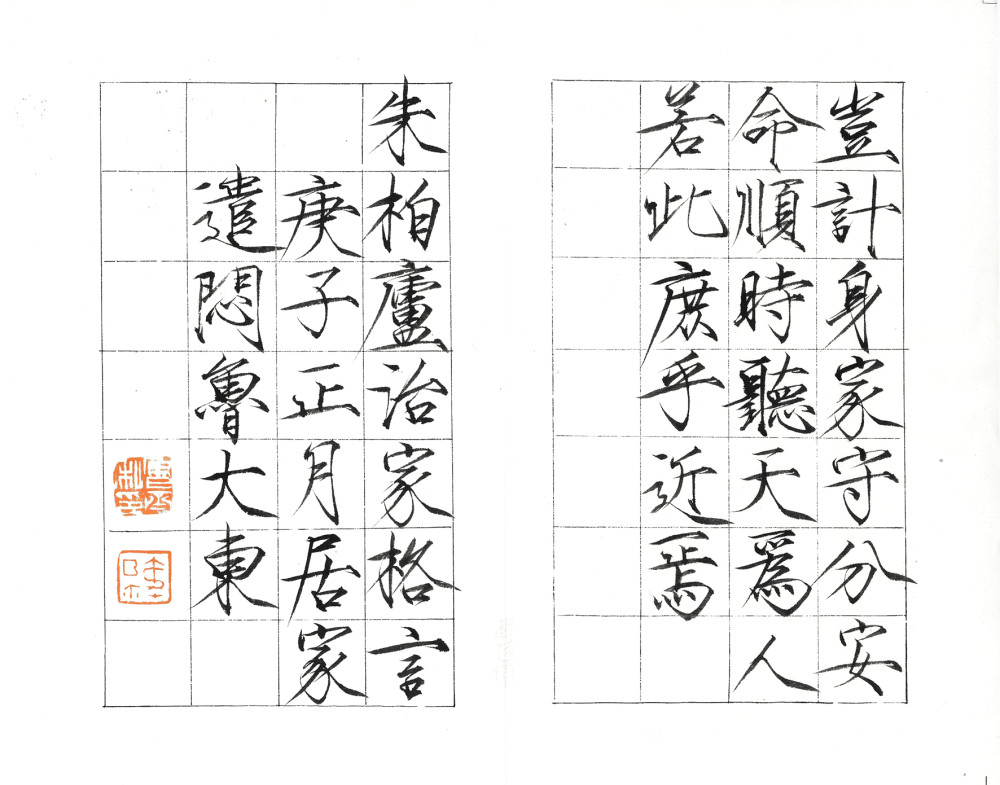 豈計身家守分安
命順時聽天為人
若此庶乎近焉
朱柏廬治家格言
庚子正月居家
遣悶魯大東